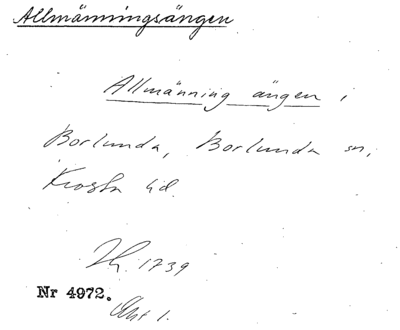 Allmänningsängen
Allmänning ängen i
Borlunda, Borlunda sn,
Frosta hd.
1739
Nr 4972.
Akt 1.